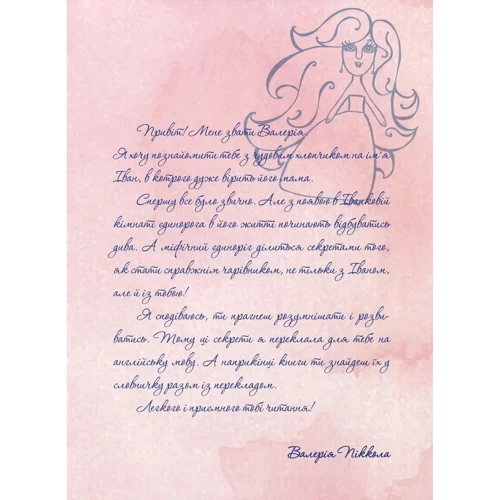 Привіт! Мене звати Валерія.
Я хочу познайомити тебе з чудовим хлопчиком на ім'я
Іван, в котрого дуже вірить його мама.
Спершу все було звично. Але з появою в Іванковій
кімнаті єдинорога в його житті починають відбуватись
дива. А міфічний єдиноріг ділиться секретами того,
як стати справжнім чарівником, не тільки з Іваном,
але й із тобою!
Я сподіваюсь, ти прагнеш розумнішати і розви-
ватись. Тому ці секрети я переклала для тебе на
англійську мову. А наприкінці книги ти знайдеш їх у
словничку разом із перекладом.
Легкого і приємного тобі читання!
Валерія Піккола